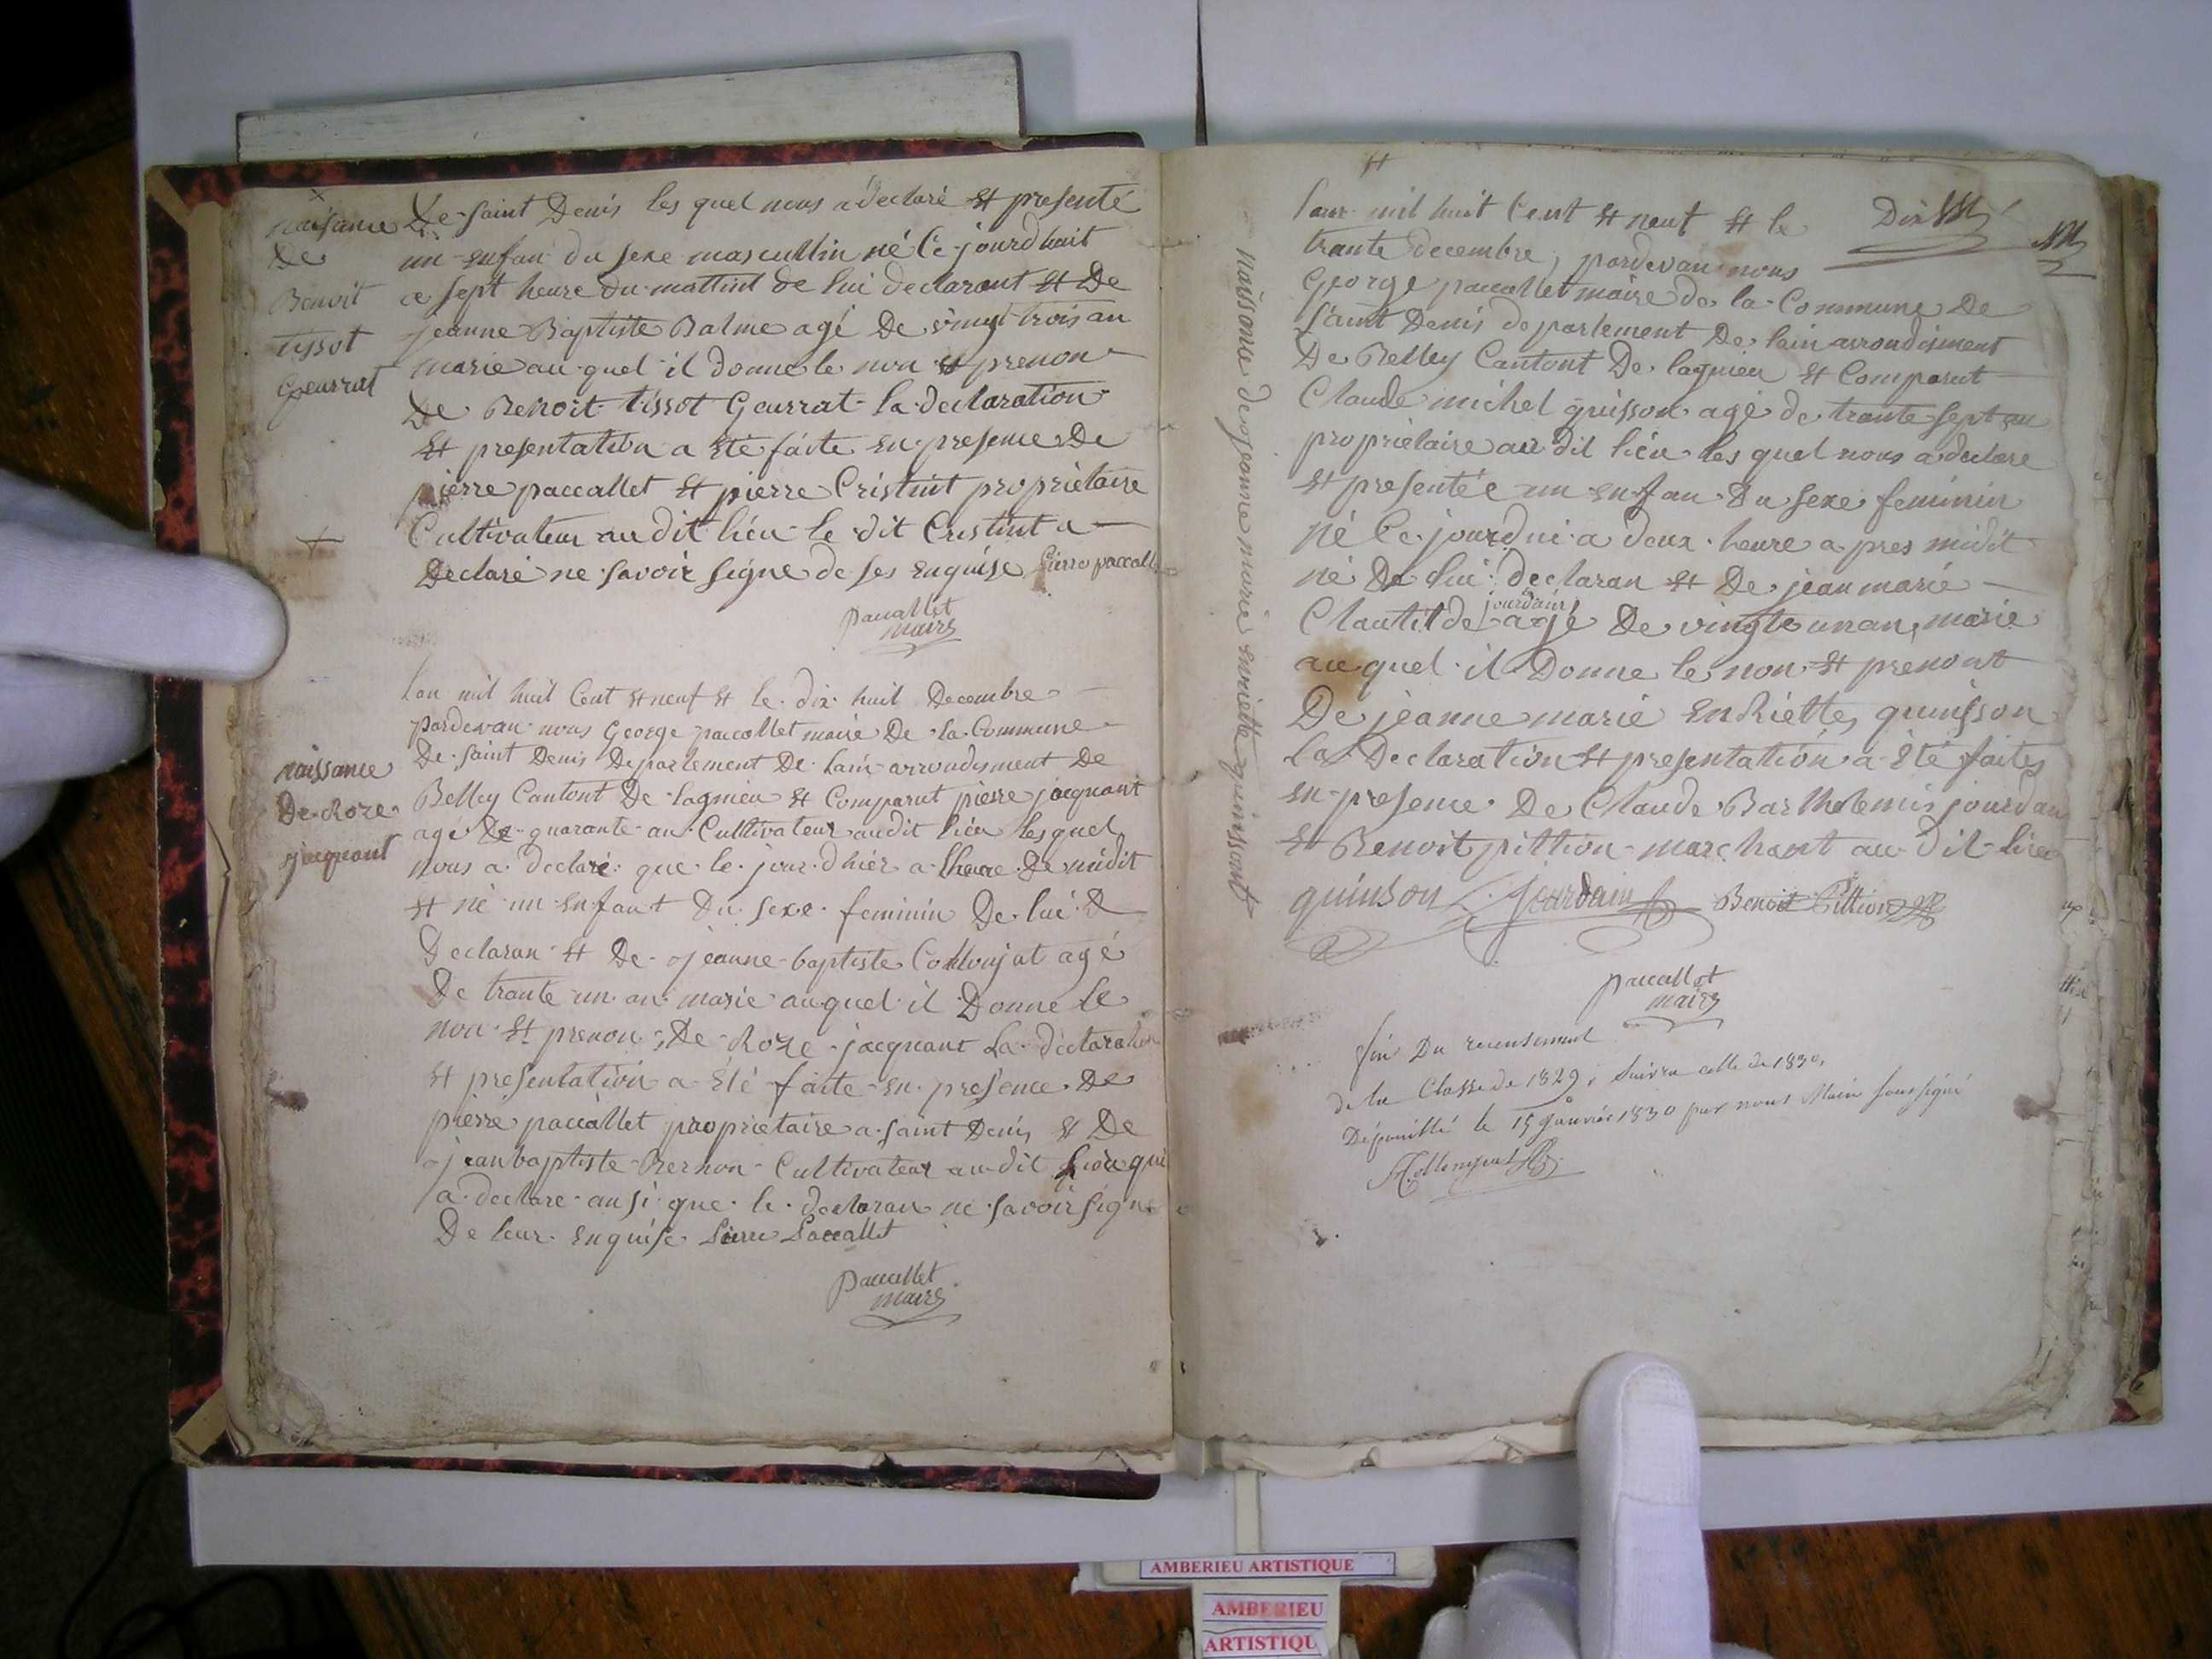 naisance
De
Benoit
tissot
Geurrat
De saint Denis les quel nous a déclaré Et presenté
un enfan du sexe mascullin né Ce jourdhuit
a sept heure du mattint de lui declarant Et De
jeanne Baptiste Balme agé De vingt trois an
marie au quel il donne le non Et prenon
De Benoit tissot Geurrat la declaration
Et presentation a Eté faite en presence De
pierre paccallet Et pierre Cristint propriétaire
Cultivateur au dit lieu le dit Cristint a
Declaré ne savoir signe de ses enquise pierre paccallet
paccallet
maire
naissance
De Roze
jacquant
Lan mil huit Cent Et neuf Et le dix huit Decembre
pardevan nous George paccollet maire De la Commune
De Saint Denis Departement De lain arrondisment De
Belley Cantont De lagnieu Et Comparut pierre jacquant
agé De quarante an Cultivateur audit lieu lesquel
nous a declaré que le jour d'hier a lheure De midit
Et né un enfant Du sexe feminin De lui
Declaran Et De jeanne baptiste agé
De trante un an marie auquel il Donne le
non Et prenon De Roze jacquant La declaration
Et presentation a Eté faite en presence De
pierre paccallet propriétaire a saint Denis Et De
jean baptiste Bernon Cultivateur au dit lieu qui
a declare ansi que le declaran ne savoir signe
De leur enquise pierre paccallet
paccallet
maire
naissance de jeanne marie enriette quinssont
Dix
Lan mil huit Cent Et neuf Et le
trante decembre, pardevan nous
George paccallet maire de la Commune De
Saint Denis departement De lain arrondisment
De Belley Cantont De lagnieu Et Comparut
Claude michel quisson agé de trante sept an
propriétaire au dit lieu les quel nous a declare
Et presentée un enfan Du sexe feminin
né le jourdui a deux heure apres midit
né De lui declaran Et De jean marie
Clautilde jourdain agé De vingte un an, marie
au quel il Donne le non Et prenont
De jeanne marie enRiette, quinsson
La Declaration Et presentation a Eté faite
en presence De Claude Bartholemis jourdan
Et Benoit pittion marchant au Dit lieu
quinson C. Jourdain Benoit Pittion
paccallet
maire
fin Du recensement
de la Classe de 1829, suivra celle de 1830,
Dépouillé le 15 janvier 1830 par nous Maire soussigné